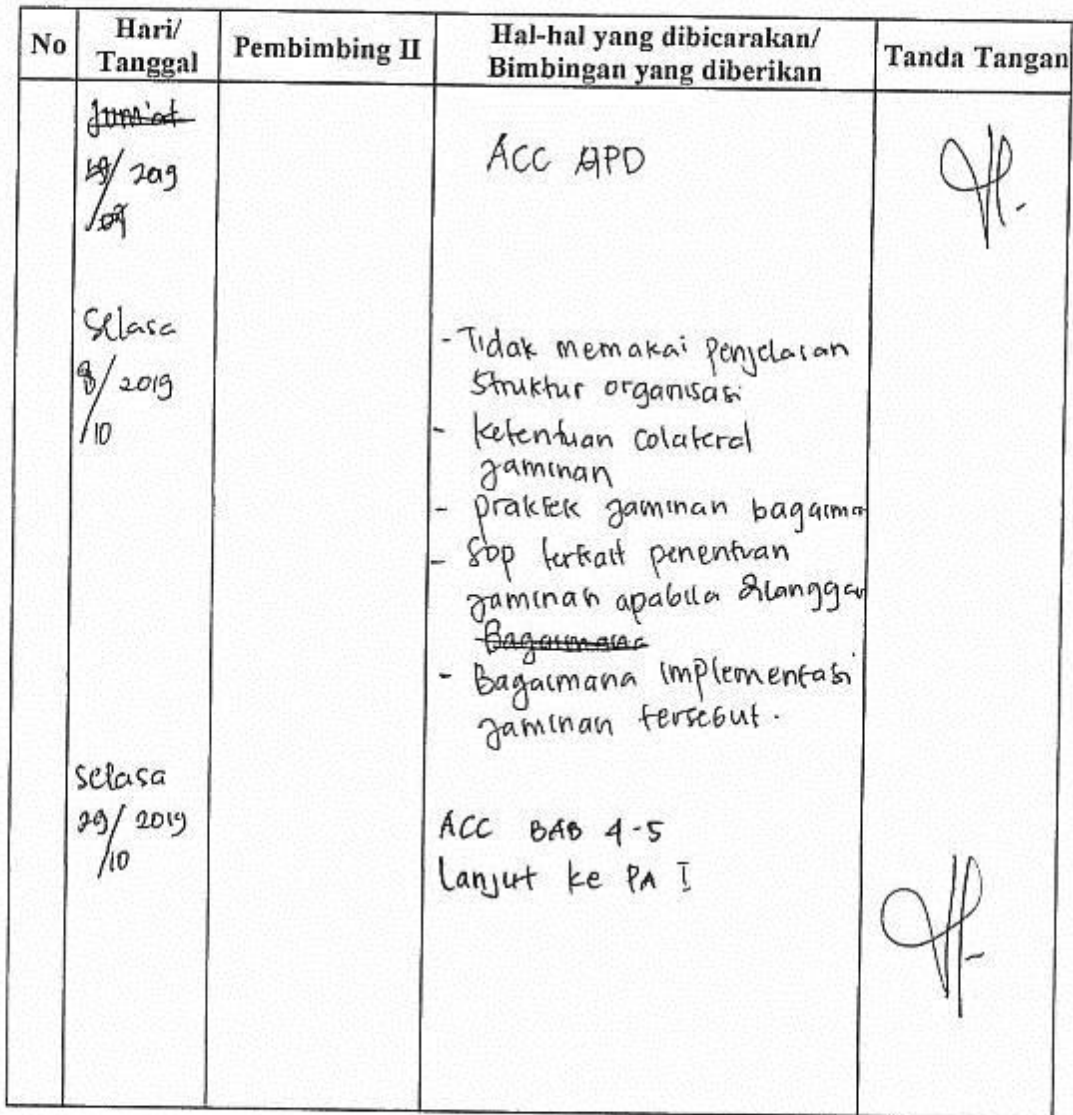 No
Hari/
Tanggal
Pembimbing II
Hal-hal yang dibicarakan/
Bimbingan yang diberikan
Tanda Tangan
Jum'at
2019
ACC APD
Selasa
8/2019
/10
- Tidak memakai penjelasan
struktur organisasi
- ketentuan colateral
jaminan
- praktek jaminan bagaima
- Sop terkait penentuan
jaminan apabila dilanggar
Bagaimana
- Bagaimana implementasi
jaminan tersebut.
Selasa
29/2019
/10
ACC BAB 4-5
Lanjut ke PA I